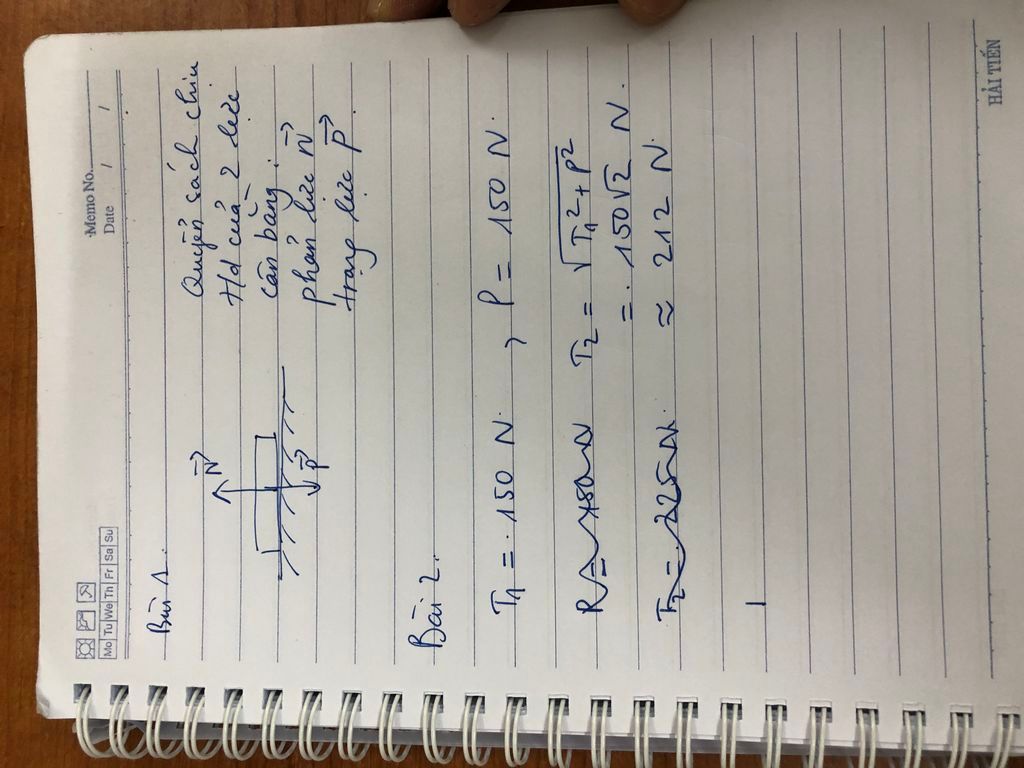 Memo No.
Date / /
Mo Tu We Th Fr Sa Su
Bài 1.
N
P
Quyển sách chịu
tđ của 2 lực
cân bằng:
phản lực N
trọng lực P
Bài 2.
T1 = 150 N , P = 150 N.
T2 = √T1² + P²
= 150√2 N.
T2 = 225N.
≈ 212 N.
HẢI TIẾN